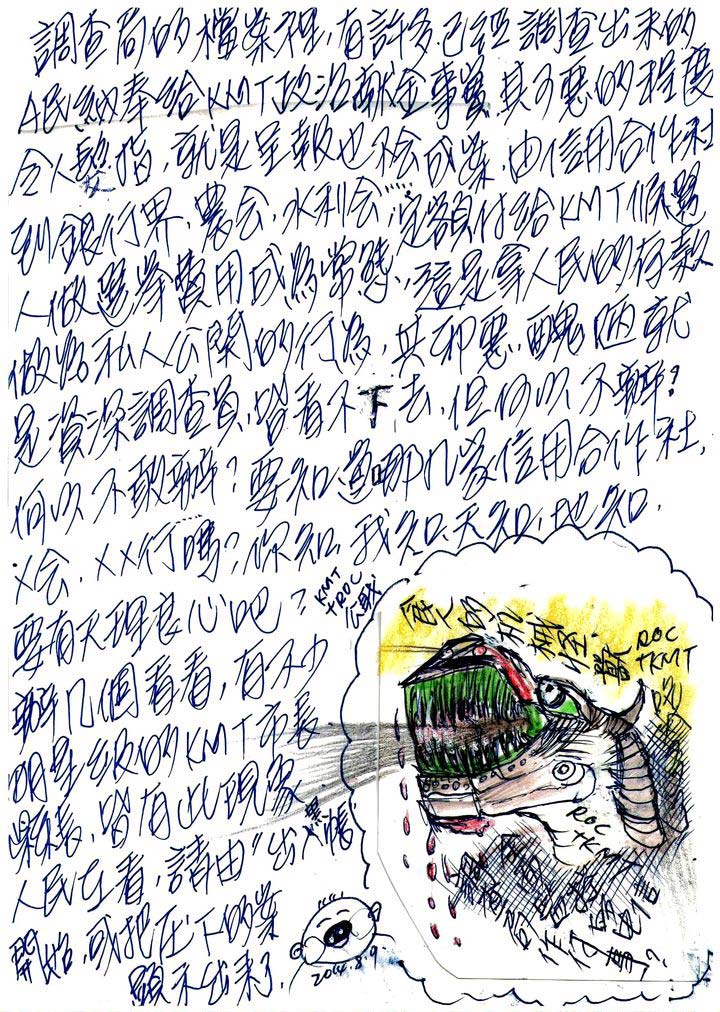 調查局的檔案裡,有許多已經調查出來的
人民納奉給KMT政治獻金事實,其可惡的程度
令人髮指,就是呈報也不会成案,由信用合作社
到銀行界,農会,水利会……定額付給KMT候選
人做選舉費用成為常態,這是拿人民的存款
做為私人公關的行為,其邪惡,醜陋就
是資深調查員,皆看不下去,但何以不辦?
何以不敢辦?要知道哪几家信用合作社,
X会,XX行嗎?你知,我知,天知,地知,
要有天理良心吧?
辦几個看看,有不少
明星級的KMT市長
縣長,皆有此現象
人民在看,請由"出入帳
黑
開始,或把压下的案
顯示出來了,
2014.8.9
KMT
+ROC
ROC
+KMT
ROC
+KMT